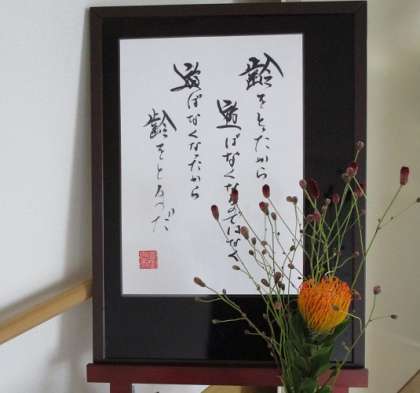 齢をとったから
遊ばなくなるのではなく
遊ばなくなったから
齢をとるのだ